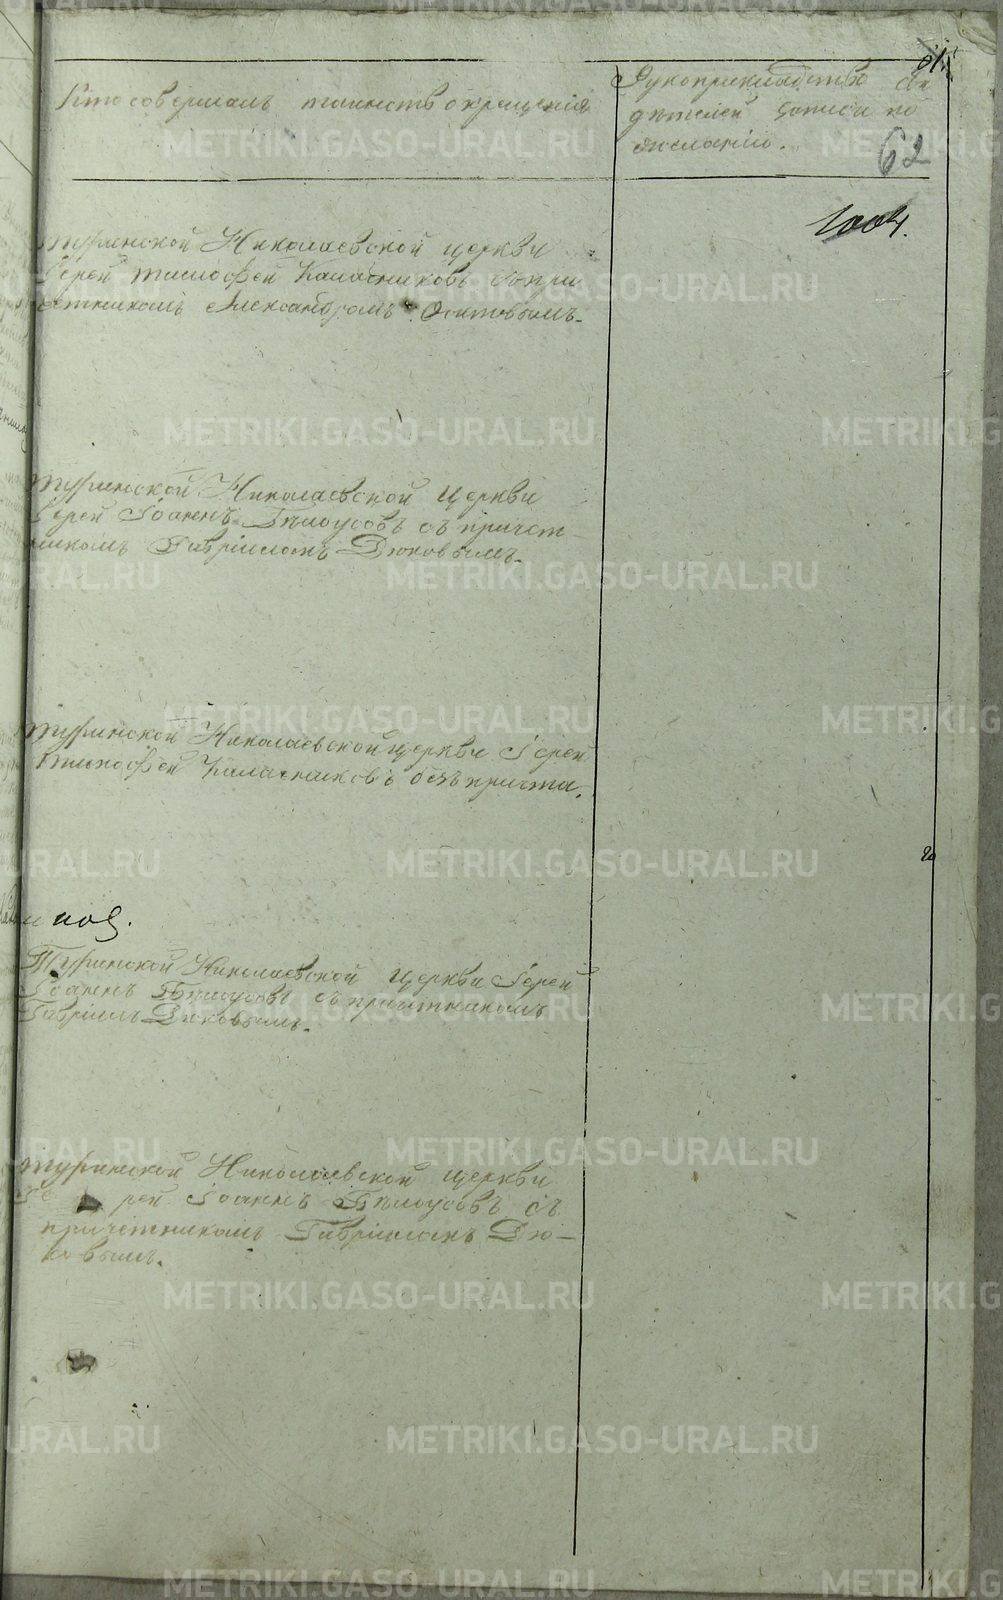 Кто совершалъ таинство крещенія
Рукоприкладство сви
дѣтелей записи по
желанію.
62
1004.
Туринской Николаевской церкви
Іерей Тимофей Калашниковъ съ при
четникомъ Александромъ
Туринской Николаевской Церкви
Іерей Іоаннъ Бѣлоусовъ съ причет-
никомъ Гавріиломъ Дюковымъ.
Туринской Николаевской церкви Іерей
Тимофей Калашниковъ безъ причта.
Туринской Николаевской Церкви Іерей
Іоаннъ Бѣлоусовъ съ причетникомъ
Гавріилъ Дюковымъ.
Туринской Николаевской церкви
Іе рей Іоаннъ Бѣлоусовъ съ
причетникомъ Гавріиломъ Дю-
ковымъ.
METRIKI.GASO-URAL.RU